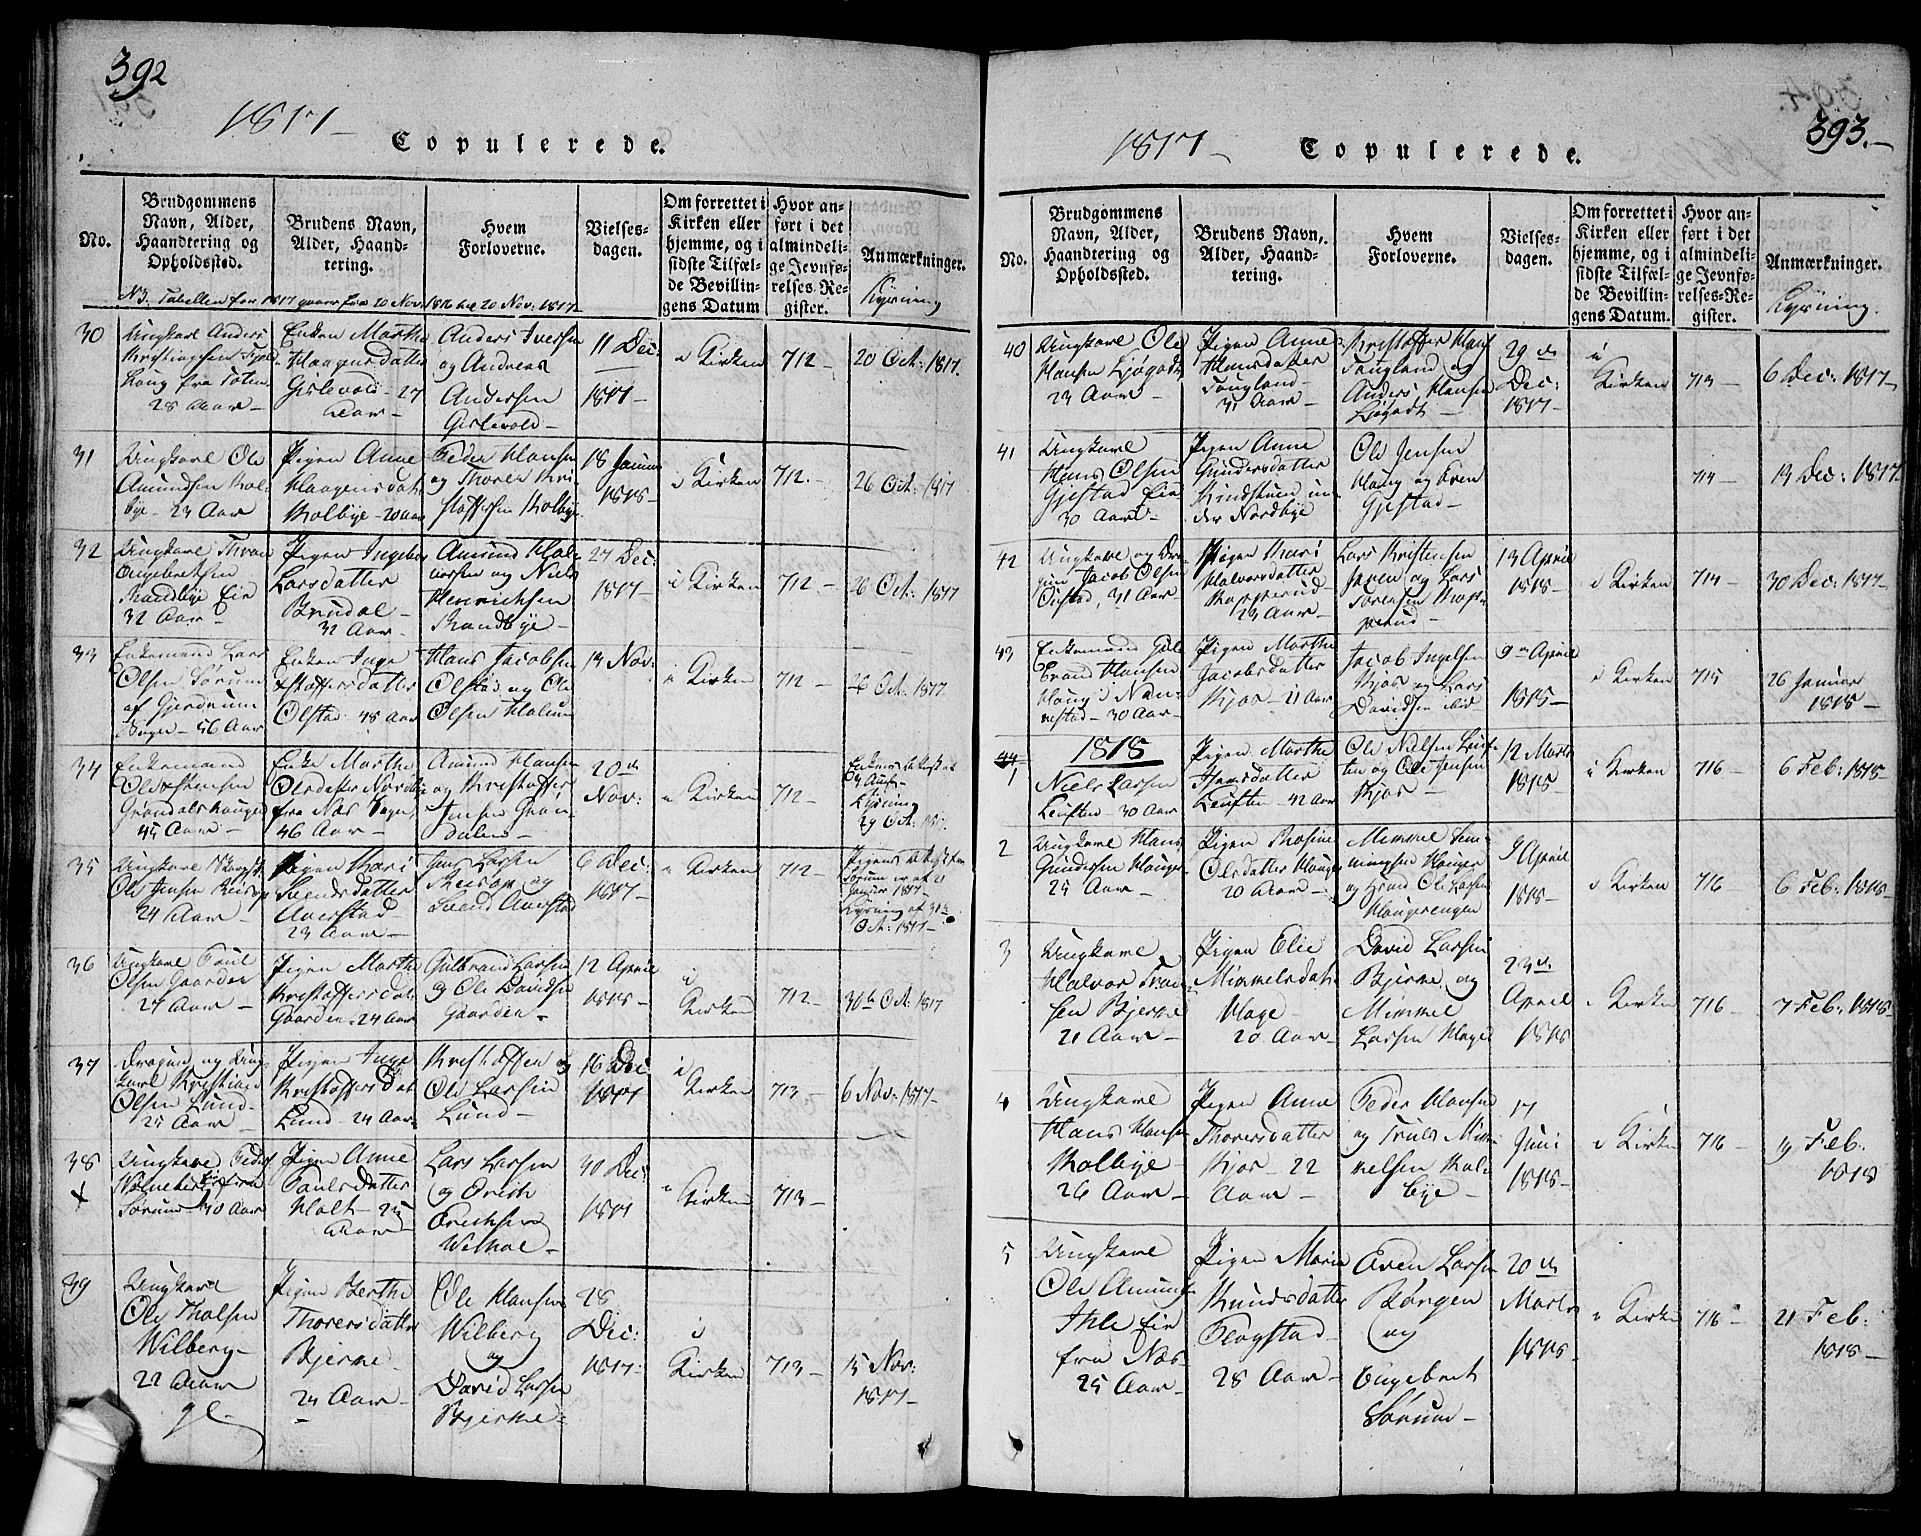 392
1817
Copulerede.
No.
Brudgommens
Navn, Alder,
Haandtering og
Opholdssted.
Brudens Navn,
Alder, Haand-
tering.
Hvem
Forloverne.
Vielses-
dagen.
Om forrettet i
Kirken eller
hjemme, og i
sidste Tilfæl-
de Bevillin-
gens Datum
Hvor an-
ført i det
almindeli-
ge Jevnfø-
relses-Re-
gister.
Anmærkninger.
Lysning
NB. Tabellen for 1817 gaaer fra 20 Nov: 1816 til 20 Nov: 1817
30
Ungkarl Anders
fra Toten
28 Aar
Enken Marthe
Haagensdatter
Gislevold - 27
Aar
Anders Iversen
og Andreas
Andersen
Gislevold
11 Dec:
1817
i Kirken
712
20 Oct: 1817.
31
Ungkarl Ole
Amundsen Kol-
bye - 23 Aar
Pigen Anne
Haagensdat:
Kolbye - 20 Aar
Peder Hansen
og Thorer Kri-
stoffersen Kolbye
18 Januar
1818
i Kirken
712.
26 Oct: 1817
32
Ungkarl
Engebretsen
Randbye Eie
32 Aar
Pigen Ingebor
Larsdatter
Brudal
32 Aar
Amund Hal-
vorsen og Niels
Henrichsen
Randbye
27 Dec:
1817
i Kirken
712.
26 Oct: 1817
33
Enkemand Lars
Olsen Sørum
af Gjerdrum
56 Aar
Enken Inge
Kristoffersdatter
Olstad 48 Aar
Hans Jacobsen
Olstad og Ole
Olsen Holum
13 Nov:
i Kirken
712
26 Oct: 1817
34
Enkemand
Ole
Grøndalshaugen
45 Aar
Enke Marthe
Olsdatter Nordbye
fra Næs
46 Aar
Amund Hansen
og Kristoffer
Jensen Grøn-
dalen
20de
Nov:
i Kirken
712
Lysning
29 Oct: 1817
35
Ungkarl
Ole Jensen
24 Aar
Pigen Kari
Svendsdatter
Aurstad
23 Aar
Jens Larsen
og
Svend Aurstad
6 Dec:
1817
i Kirken
712
Januar 1817
Lysning af 30te
Oct: 1817
36
Ungkarl Paul
Olsen Gaarder
27 Aar
Pigen Marthe
Kristoffersdat:
Gaarden - 24 Aar
Gulbrand Larsen
og Ole Davidsen
Gaarden
12 April
1818
i
Kirken
712
30te Oct: 1817
37
Dragun og Ung-
karl Kristian
Olsen Lund
25 Aar
Pigen Inge
Kristoffersdat:
Lund - 24 Aar
Kristoffer og
Ole Larsen
Lund
16 Dec:
1817
i
Kirken
713
6 Nov: 1817
38
Ungkarl Peder
fra
Sørum 30 Aar
Pigen Anne
Paulsdatter
Holt - 25
Aar
Lars Larsen
og Erich
Erichsen
30 Dec:
1817
i Kirken
713
39
Ungkarl
Ole Tholsen
Wilberg
22 Aar
Pigen Berthe
Thorersdatter
Bjerke
24 Aar
Ole Hansen
Wilberg
og
David Larsen
Bjerke
28
Dec:
1817
i
Kirken
713
15 Nov:
1817
393.
1817
Copulerede.
No.
Brudgommens
Navn, Alder,
Haandtering og
Opholdssted.
Brudens Navn,
Alder, Haand-
tering.
Hvem
Forloverne.
Vielses-
dagen.
Om forrettet i
Kirken eller
hjemme, og i
sidste Tilfæl-
de Bevillin-
gens Datum.
Hvor an-
ført i det
almindeli-
ge Jevnfø-
relses-Re-
gister.
Anmærkninger.
Lysning.
40
Ungkarl Ole
Hansen Ljøgodt
23 Aar
Pigen Anne
Hansdatter
Tangland
31 Aar
Kristoffer Hansen
Tangland og
Anders Hansen
Ljøgodt
29de
Dec:
1817
i
Kirken
713
6 Dec: 1817
41
Ungkarl
Hans Olsen
Gjestad Eie
30 Aar
Pigen Anne
Gundersdatter
un-
der Nordbye
Ole Jensen
Haug og Even
Gjestad
714
13 Dec: 1817
42
Ungkarl og Dra-
gun Jacob Olsen
31 Aar
Pigen Kari
Halvorsdatter
Kopperud
23 Aar
Lars Kristensen
og Lars
Sørensen Kop-
perud
13 April
1818
i Kirken
714
30 Dec: 1817
43
Enkemand Gul-
brand Hansen
Haug i Nan-
nestad - 30 Aar
Pigen Marthe
Jacobsdatter
Kjos - 21 Aar
Jacob Ingelsen
Kjos og Lars
Davidsen
9de April
1818
i Kirken
715
26 Januar
1818
44
1
1818
Niels Larsen
Leuften 30 Aar
Pigen Marthe
Leuften - 42 Aar
Ole Nielsen Leuf-
ten og Ole Jensen
Kjos
12 Marts
1818
i Kirken
716
6 Feb: 1818
2
Ungkarl Hans
Gundersen Hauger
25 Aar
Pigen Rosine
Olsdatter Hauger
20 Aar
Mimmel Hem-
mingsen Hauger
og Ole Larsen
Haugerengen
9 April
1818
i Kirken
716
6 Feb: 1818
3
Ungkarl
Halvor
Bjerke
21 Aar
Pigen Elie
Mimmelsdat:
Hage
20 Aar
David Larsen
Bjerke og
Mimmel
Larsen Hage
23de
April
1818
i Kirken
716
7 Feb: 1818
4
Ungkarl
Hans Hansen
Kolbye
26 Aar
Pigen Anne
Thorersdatter
Kjos - 22
Aar
Peder Hansen
og Truls Mim-
melsen Kol-
bye
17
Juni
1818
i Kirken
716
19 Feb:
1818
5
Ungkarl
Ole Amunds:
Ihle Eie
fra Næs
25 Aar
Pigen Marie
Knudsdatter
Flogstad
28 Aar
Even Larsen
Børgen
og
Engebret
Sørum
20de
Marts
1818
i Kirken
716
21 Feb:
1818